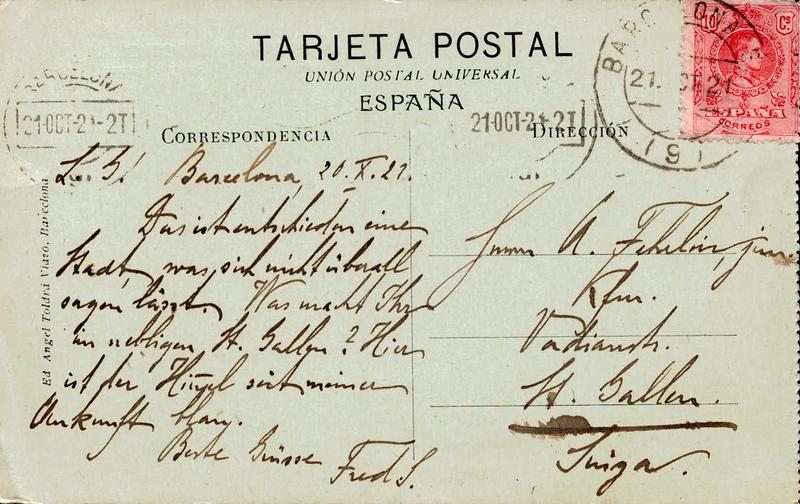 TARJETA POSTAL
UNIÓN POSTAL UNIVERSAL
ESPAÑA
CORRESPONDENCIA
DIRECCIÓN
BARCELONA
21 OCT-21-2T
21 OCT-21-2T
BARCELONA
21. OCT 21
(9)
10 Cs
ESPAÑA
CORREOS
Ed Angel Toldrá Viazo, Barcelona
L. S! Barcelona, 20. X. 21.
Das ist entschieden eine
Stadt, was sich nicht überall
sagen lässt. Was macht Ihr
im nebligen St. Gallen? Hier
ist der Himmel seit meiner
Ankunft blau.
Beste Grüsse
Fred S.
Herrn A. Fehrlin, jun.
Kfm.
Vadianstr.
St. Gallen.
Suiza.